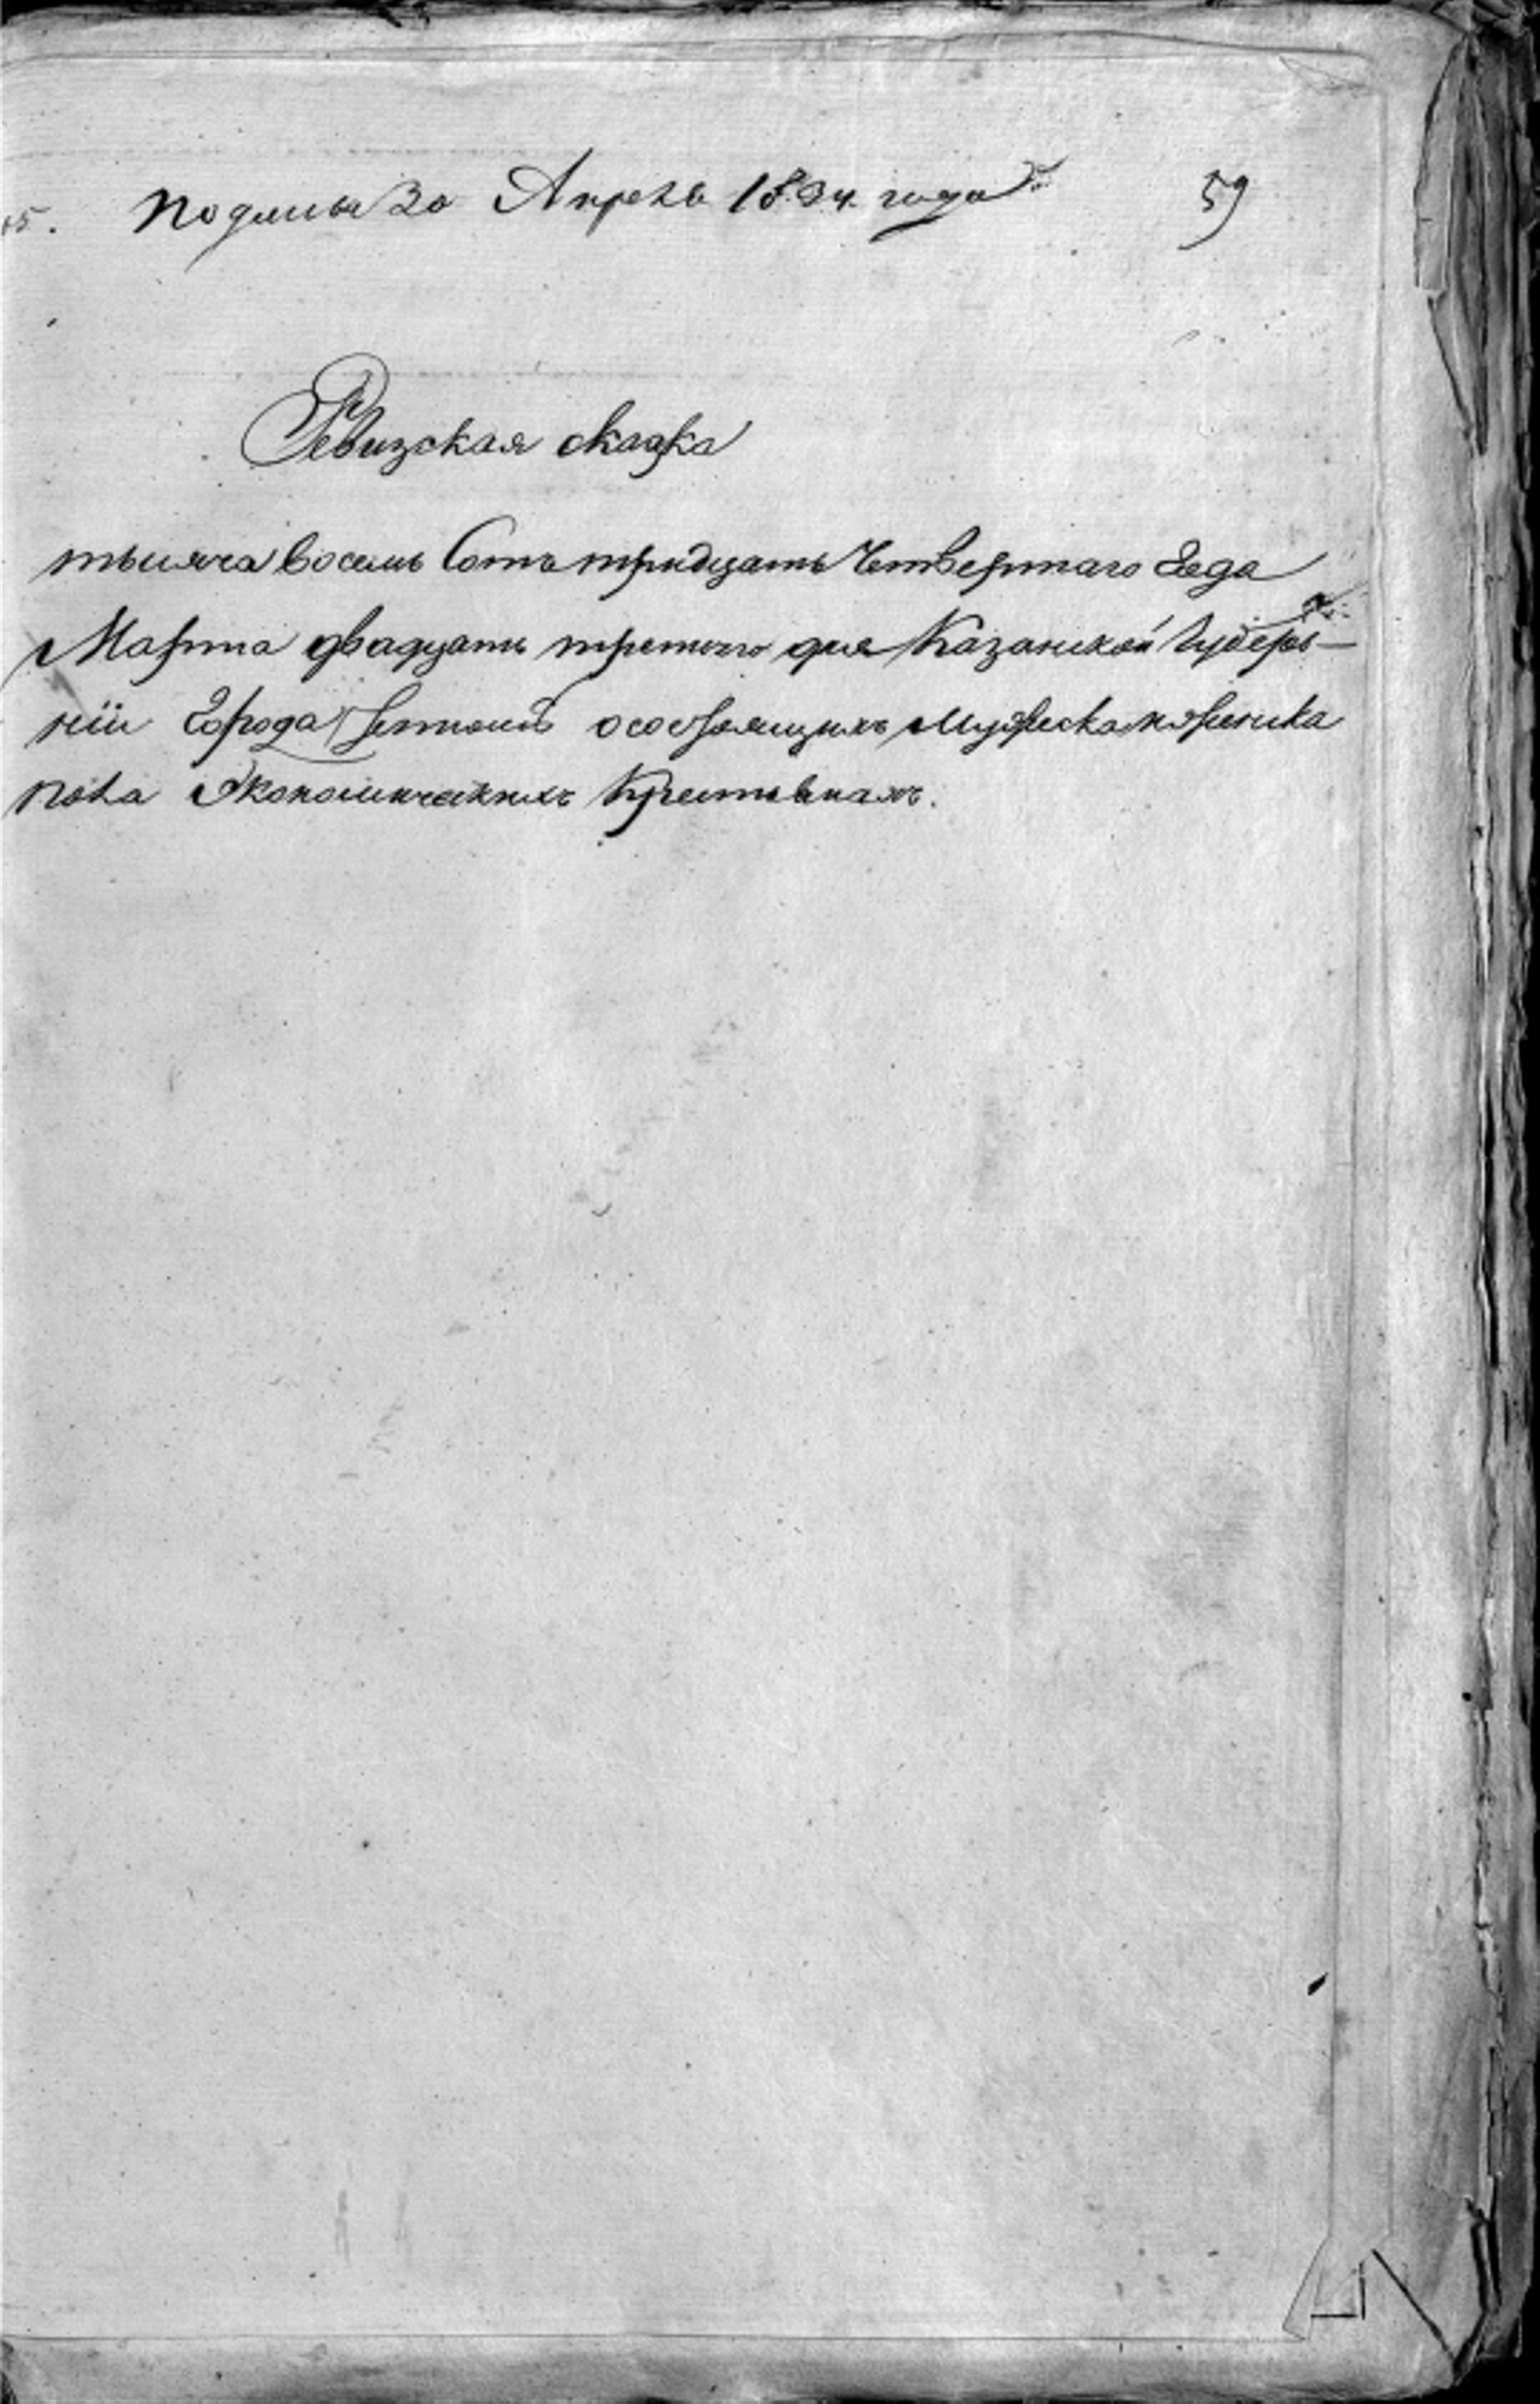 15. подана 30 Апреля 1834. года 59
Ревизская сказка
тысяча восемь Сотъ тридцать Четвертаго Года
Марта двадцать третьего дня Казанской Губерь-
нiи Города осостоящихъ Мужеска иженска
пола Экономическихъ Крестьянахъ.